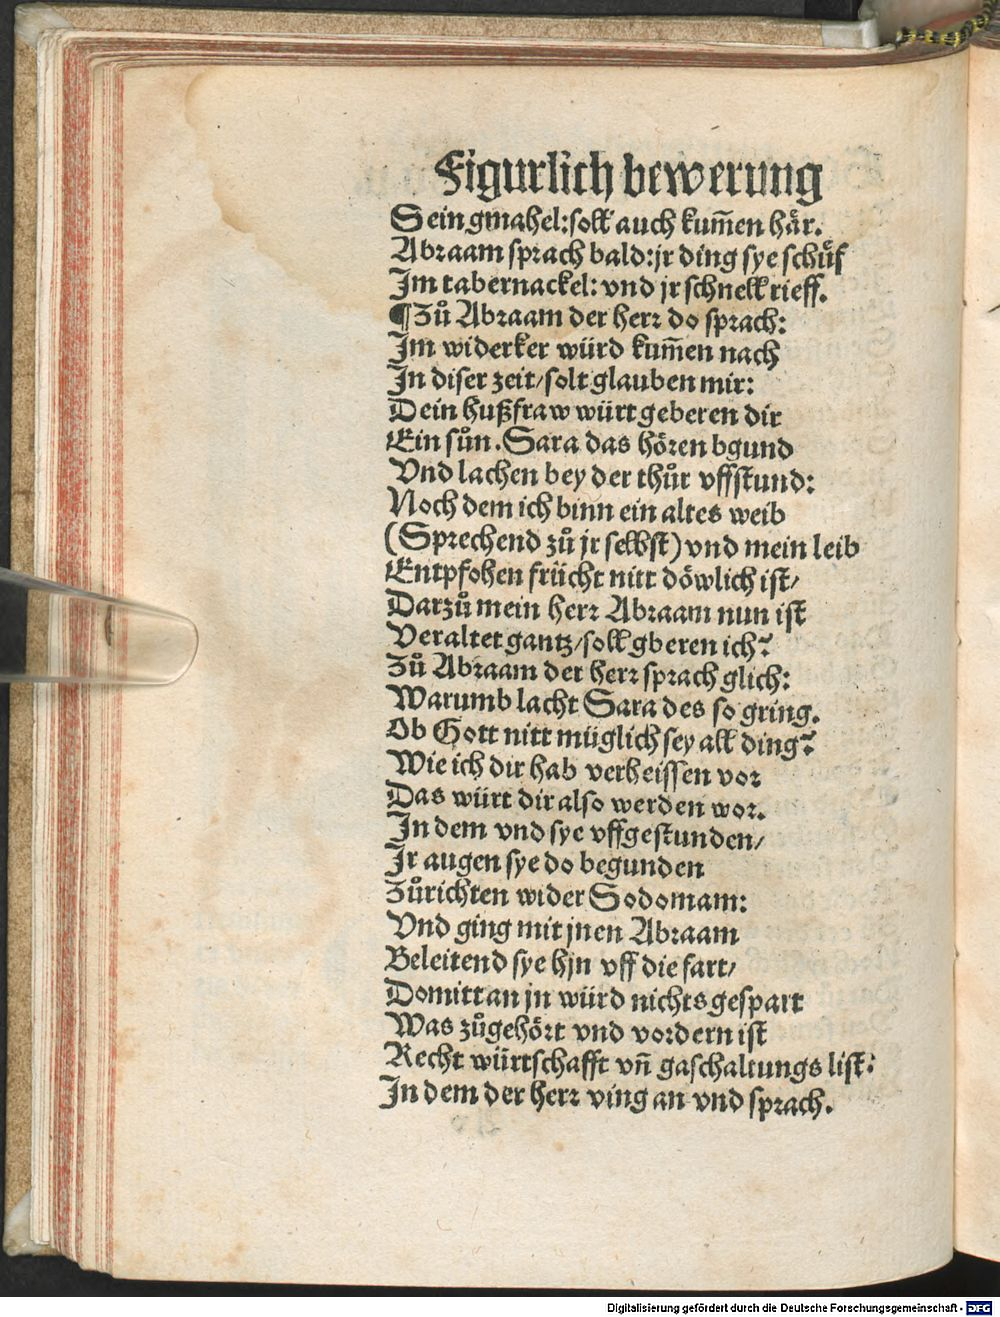 Figurlich bewerung
Sein gmahel: soll auch kum̃en håͤr.
Abraam sprach bald: jr ding sye schuͤf
Im tabernackel: vnd jr schnell rieff.
¶Zuͦ Abraam der herr do sprach:
Im widerker würd kum̃en nach
In diser zeit/ solt glauben mir:
Dein hußfraw würt geberen dir
Ein suͦn. Sara das hören bgund
Vnd lachen bey der thuͦr vffstund:
Noch dem ich binn ein altes weib
(Sprechend zuͦ jr selbst) vnd mein leib
Entpfohen frücht nitt döwlich ist/
Darzuͦ mein herr Abraam nun ist
Veraltet gantz/ soll gberen ich?
Zuͦ Abraam der herr sprach glich:
Warumb lacht Sara des so gring.
Ob Gott nitt müglich sey all ding?
Wie ich dir hab verheissen vor
Das würt dir also werden wor.
In dem vnd sye vffgestunden/
Ir augen sye do begunden
Zuͦrichten wider Sodomam:
Vnd ging mit jnen Abraam
Beleitend sye hjn vff die fart/
Domitt an jn würd nichts gespart
Was zuͦgehoͤrt vnd vordern ist
Recht würtschafft vñ gaschaltungs list:
In dem der herr ving an vnd sprach.
Digitalisierung gefördert durch die Deutsche Forschungsgemeinschaft - DFG